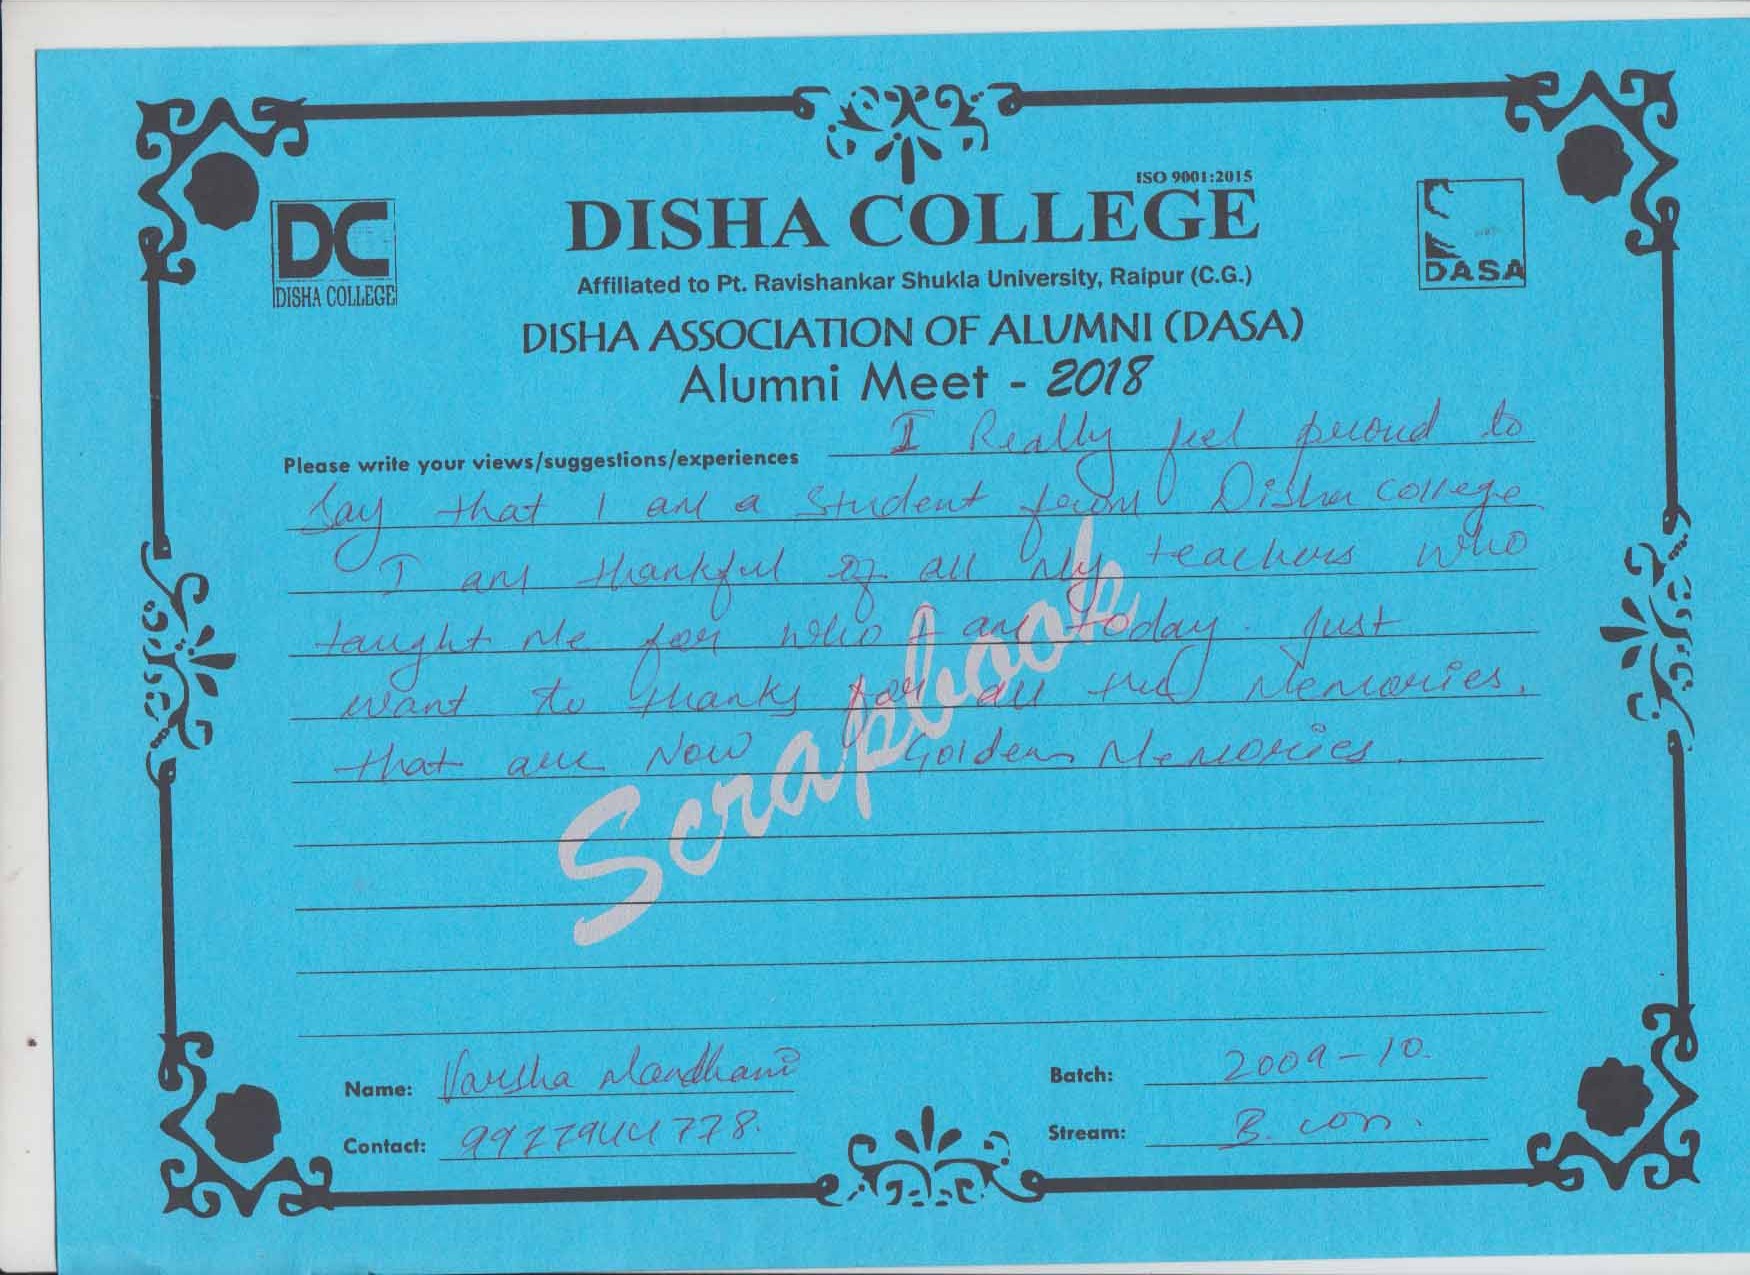 ISO 9001:2015
DC
DISHA COLLEGE
DISHA COLLEGE
DASA
Affiliated to Pt. Ravishankar Shukla University, Raipur (C.G.)
DISHA ASSOCIATION OF ALUMNI (DASA)
Alumni Meet - 2018
Please write your views/suggestions/experiences I Really feel proud to
Say that I am a student from Disha college
I am thankful of all My teachers who
taught Me for who I am today. Just
want to thanks for all the Memories.
that are Now Golden Memories.
Scrapbook
Name: Varsha Mandhani
Batch: 2009-10.
Contact:
Stream: B. com.